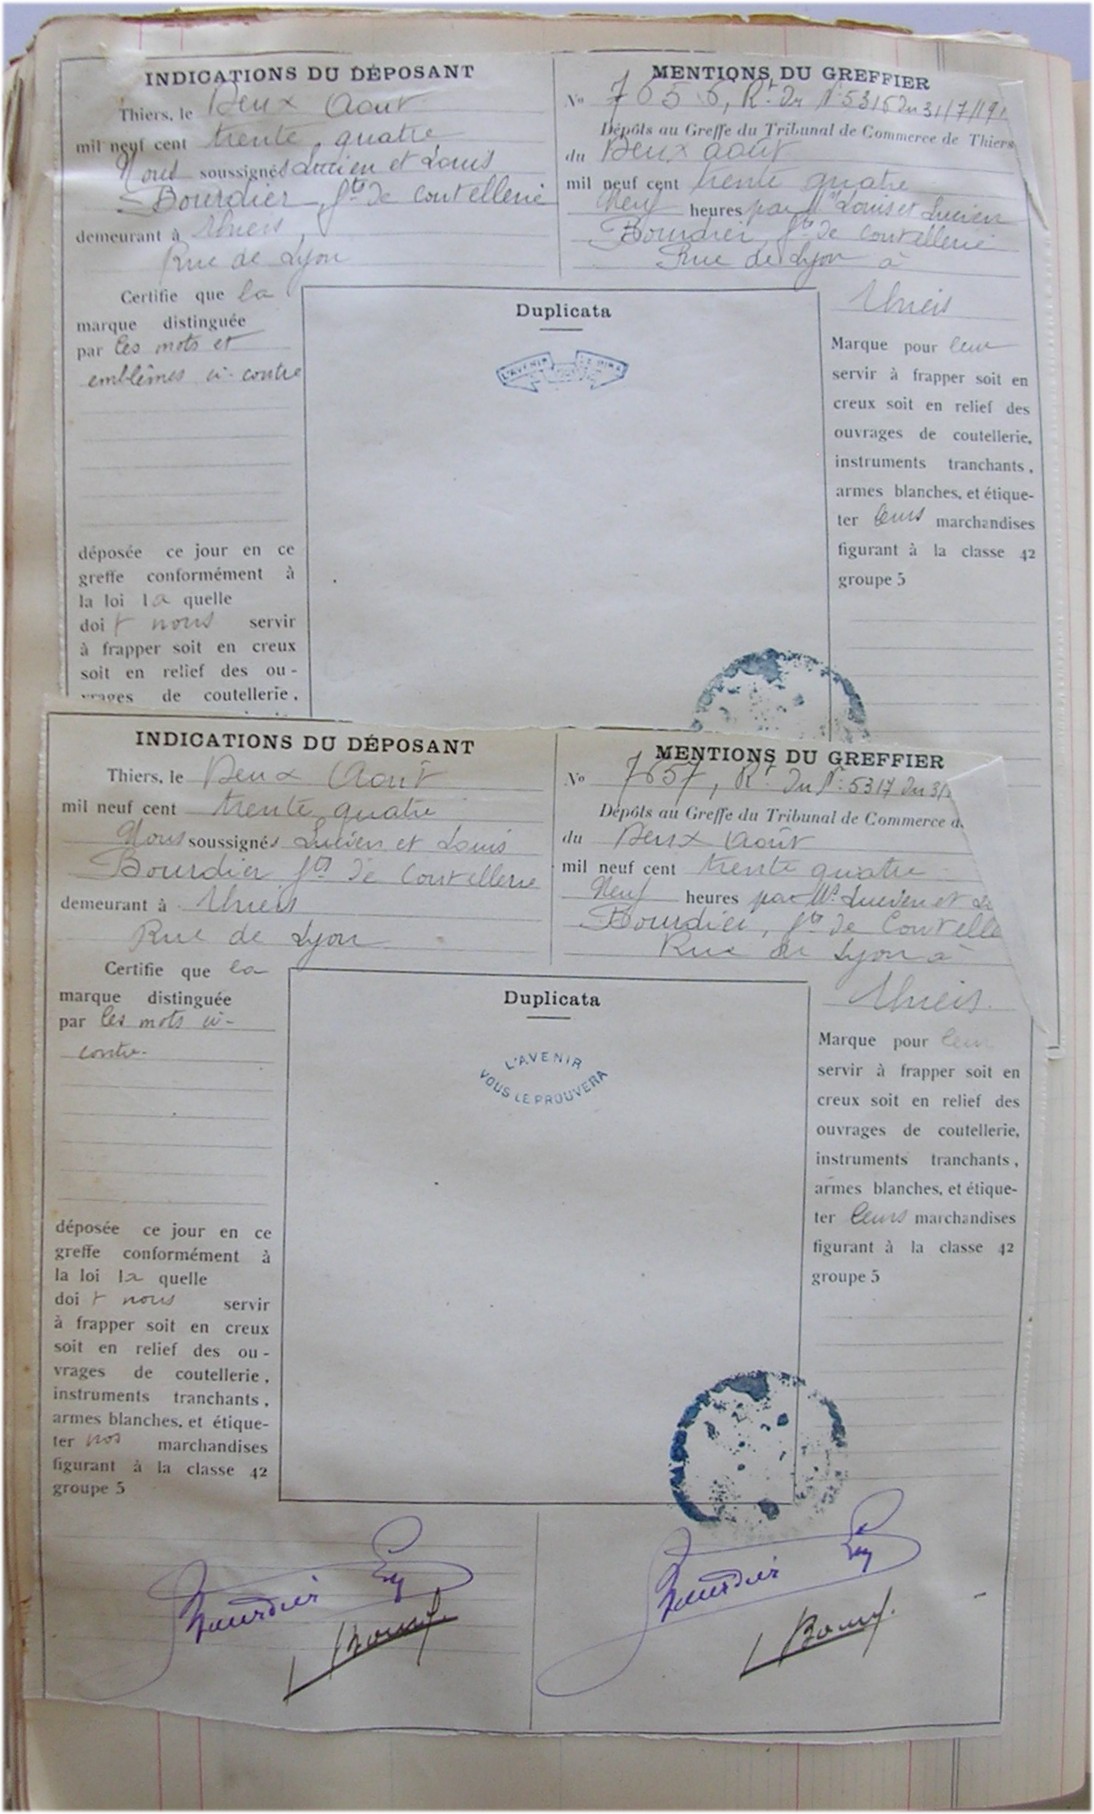 INDICATIONS DU DÉPOSANT
Thiers, le Deux Aout
mil neuf cent trente quatre
Nous soussignés Lucien et Louis
Bourdier fts de Coutellerie
demeurant à Thiers
Rue de Lyon
Certifie que la
marque distinguée
par les mots et
emblèmes ci-contre
déposée ce jour en ce
greffe conformément à
la loi la quelle
doit nous servir
à frapper soit en creux
soit en relief des ou-
vrages de coutellerie,
Duplicata
L'AVENIR
MENTIONS DU GREFFIER
No 7656, Rt du No 5316 du 31/7/191
Dépôts au Greffe du Tribunal de Commerce de Thiers
du Deux août
mil neuf cent trente quatre
Neuf heures par Mrs Louis et Lucien
Bourdier, fts de Coutellerie
Rue de Lyon à
Thiers
Marque pour leur
servir à frapper soit en
creux soit en relief des
ouvrages de coutellerie,
instruments tranchants,
armes blanches, et étique-
ter leurs marchandises
figurant à la classe 42
groupe 5
INDICATIONS DU DÉPOSANT
Thiers, le Deux Août
mil neuf cent trente quatre
Nous soussignés Lucien et Louis
Bourdier fts de Coutellerie
demeurant à Thiers
Rue de Lyon
Certifie que la
marque distinguée
par les mots ci-
contre
déposée ce jour en ce
greffe conformément à
la loi la quelle
doit nous servir
à frapper soit en creux
soit en relief des ou-
vrages de coutellerie,
instruments tranchants,
armes blanches, et étique-
ter nos marchandises
figurant à la classe 42
groupe 5
Duplicata
L'AVENIR
VOUS LE PROUVERA
MENTIONS DU GREFFIER
No 7657, Rt du No 5317 du 31/
Dépôts au Greffe du Tribunal de Commerce d
du Deux Août
mil neuf cent trente quatre
Neuf heures par Mrs Lucien et Lo
Bourdier, fts de Coutelle
Rue de Lyon à
Thiers
Marque pour leur
servir à frapper soit en
creux soit en relief des
ouvrages de coutellerie,
instruments tranchants,
armes blanches, et étique-
ter leurs marchandises
figurant à la classe 42
groupe 5
Bourdier
Bourdier